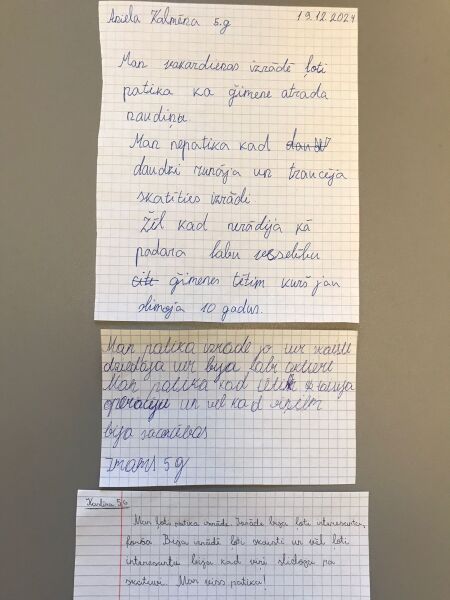 Aniela Kalmēna 5.g 19.12.2024
Man vakardienas izrādē ļoti
patika ka ģimene atrada
naudiņu.
Man nepatika kad
daudzi runāja un traucēja
skatīties izrādi.
Žēl kad nerādīja kā
padara labu veselību
citi ģimenes tētim kurš jau
slimoja 10 gadus.
Man patika izrāde jo tur skaisti
dziedāja un bija labi aktieri
Man patika kad
un vēl kad viņiem
bija
5 g
Karlīna 5.g
Man ļoti patika izrāde. Izrāde bija ļoti interesanta,
forša. Bija izrādē ļoti skaisti un vēl ļoti
interesantu bija kad viņi slidoja pa
skatuvi. Man viss patika!